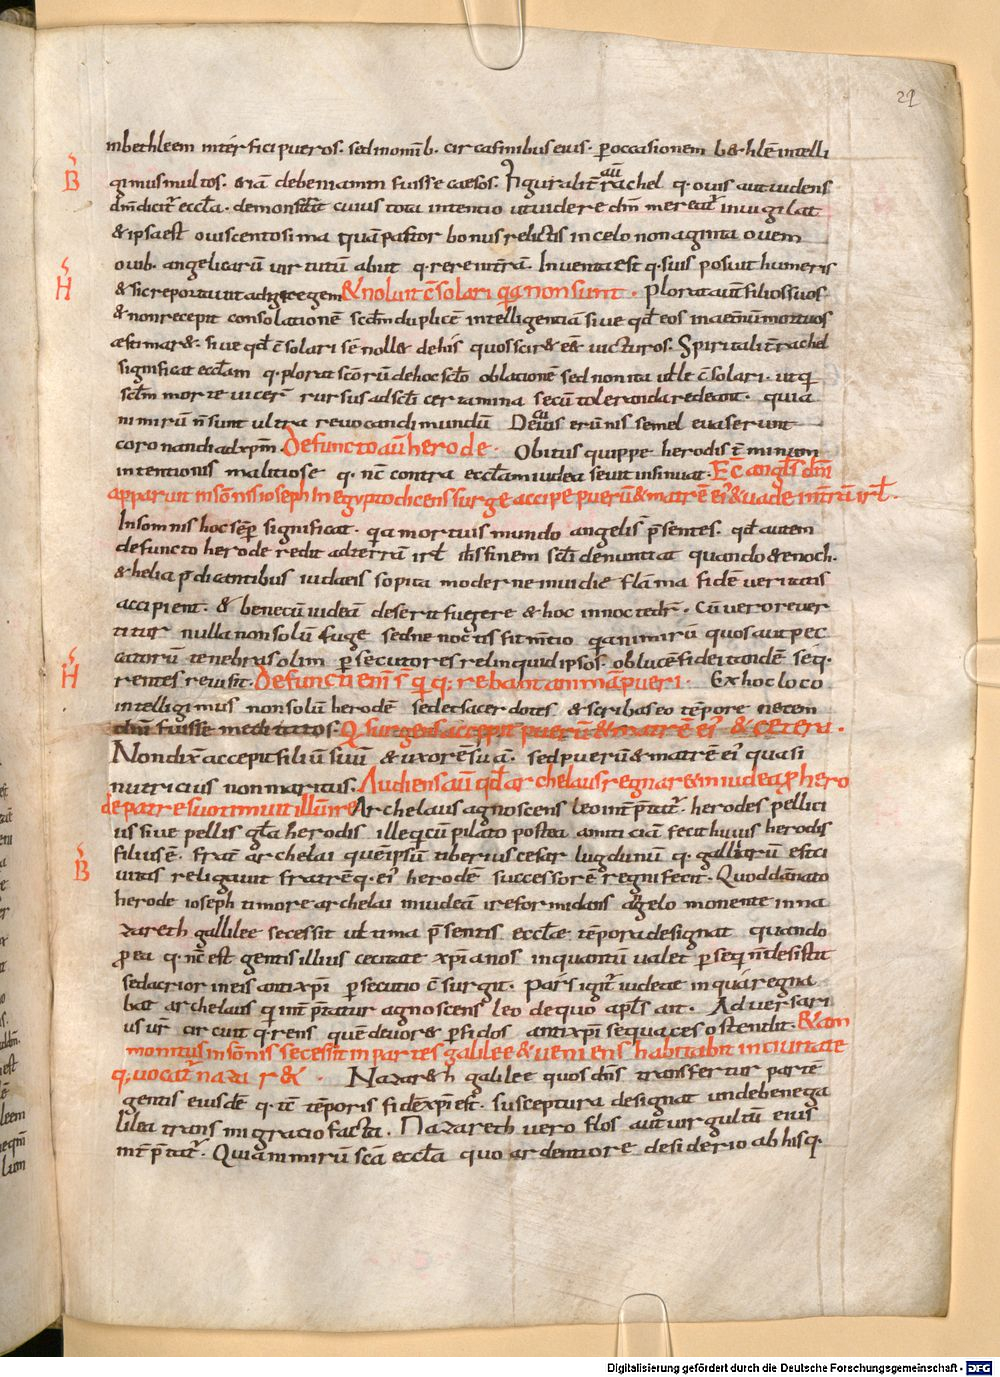 29
inbethleem interfici pueros. sed in omnib. circa finibus eius. p occasionem bethlẽ intelli
B
gimus multos. etiã debeniamin fuisse caesos. Figuralit̃ aũ rachel q. ouis aut uidens
dm̃ dicit̃ eccła. demonstrat cuius tota intentio ut uidere dm̃ mereat̃ inuigilat
& ipsa est ouis centosima quã pastor bonus relictis in celo nonaginta ouem
ouib. angelicarũ uirtutũ abiit q̨rere in tr̃a. Inuentã est q. suis posuit humeris
H
& sic reportauit ad gregem & noluit c̃solari q̨a non sunt. Plorat aut̃ filios suos
& non recepit consolationẽ scd̃m duplicẽ intelligentiã siue qd̃ eos in aet̃nũ mortuos
aestimar&. siue qd̃ c̃solari sẽ noll& de his quos scir& eẽ uicturos. Spiritalit̃ rachel
significat eccłam q. plorat sc̃orũ de hoc sc̃lo oblationẽ sed non ita ut uelle c̃solari. ut qui
sc̃lm morte uicer̃ rursus ad sc̃li certamina secũ toleranda redeant. quia
nimirũ ñ sunt ultra reuocandi mundũ
coronandi ad xpm̃. Defuncto aũ herode. Obitus quippe herodis t̃minum
intentionis malitiose q. nc̃ contra eccłam iudea seuit insinuat. Ecc̃ angl̃s dm̃
apparuit in sõnis ioseph in egypto dicens surge accipe puerũ & matrẽ ei' & uade in tr̃ã isrł.
In somnis hoc sẽp significat. q̨a mortuis mundo angelis p̃sentes. qd̃ autem
defuncto herode redit ad terrã isrł
& helia p̃dicantibus iudaeis sopita moderne inuidie flãma fidẽ ueritatis
accipient. & bene cũ iudeã deserit fugere & hoc in nocte dr̃. Cũ uero reuer
titur nulla non solũ fuge sed ne noctis fit m̃tio q̨a nimirũ quos aut pec
H
catorũ tenebras olim p̃secutores relinquid ipsos. ob lucẽ fidei tandẽ seq̨.
rentes reuisit. Defuncti em̃ s̃ q̨ q̨rebant animã pueri. Ex hoc loco
intelligimus non solũ herodẽ sed et sacerdotes & scribas eo tẽpore necem
dm̃ fuisse meditatos. Q surgens accepit puerũ & matrẽ ei' & cetera.
Non dix̃ accepit filiũ suũ & uxorẽ suã. sed puerũ & matrẽ ei' quasi
nutricius non maritus. Audiens aũ qd̃ archelaus regnar& in iudea p̃ hero
de patre suo timuit illũ ire Archelaus agnoscens leo int̃p̃tat̃. herodes pellici
us siue pellis gła herodis. ille q. cũ pilato postea amiciciã fecit huius herodis
B
filius ẽ. frat̃ archelai quẽ ipsũ tiberius cesar lugdunũ q. galliarũ est ci
uitas religauit fratrẽ q. ei' herodẽ successorẽ regni fecit. Quod dãnato
herode ioseph timore archelai in iudeam ire formidans angelo monente in na
zareth gallilee secessit ultima p̃sentis eccłae tẽpora designat quando
p̃ ea q. nc̃ est gentis illius cecitate xpianos in quantũ ualet p̃seq ñ desistit
sed acrior in eis antixpi p̃secutio c̃surgit. Pars igit̃ iudeae in qua regna
bat archelaus qui int̃p̃tatur agnoscens leo de quo apl̃s ait. Aduersari
us ur̃ circuit q̨rens quẽ deuor& p̃fidos antixpi sequaces ostendit. & am
monitus in sõnis secessit in partes galilee & ueniens habitabit in ciuitate
q; uocat̃ nazar&. Nazar&h galilee quo dñs transfertur partẽ
gentis eiusdẽ q. tẽ tẽporis fidẽ xpi est. susceptura designat unde bene ga
lilea transmigracio facta. Nazareth uero flos aut uirgultũ eius
int̃p̃tat̃. Quia nimirũ sc̃a eccła quo ardentiore desiderio ab his q.
Digitalisierung gefördert durch die Deutsche Forschungsgemeinschaft - DFG